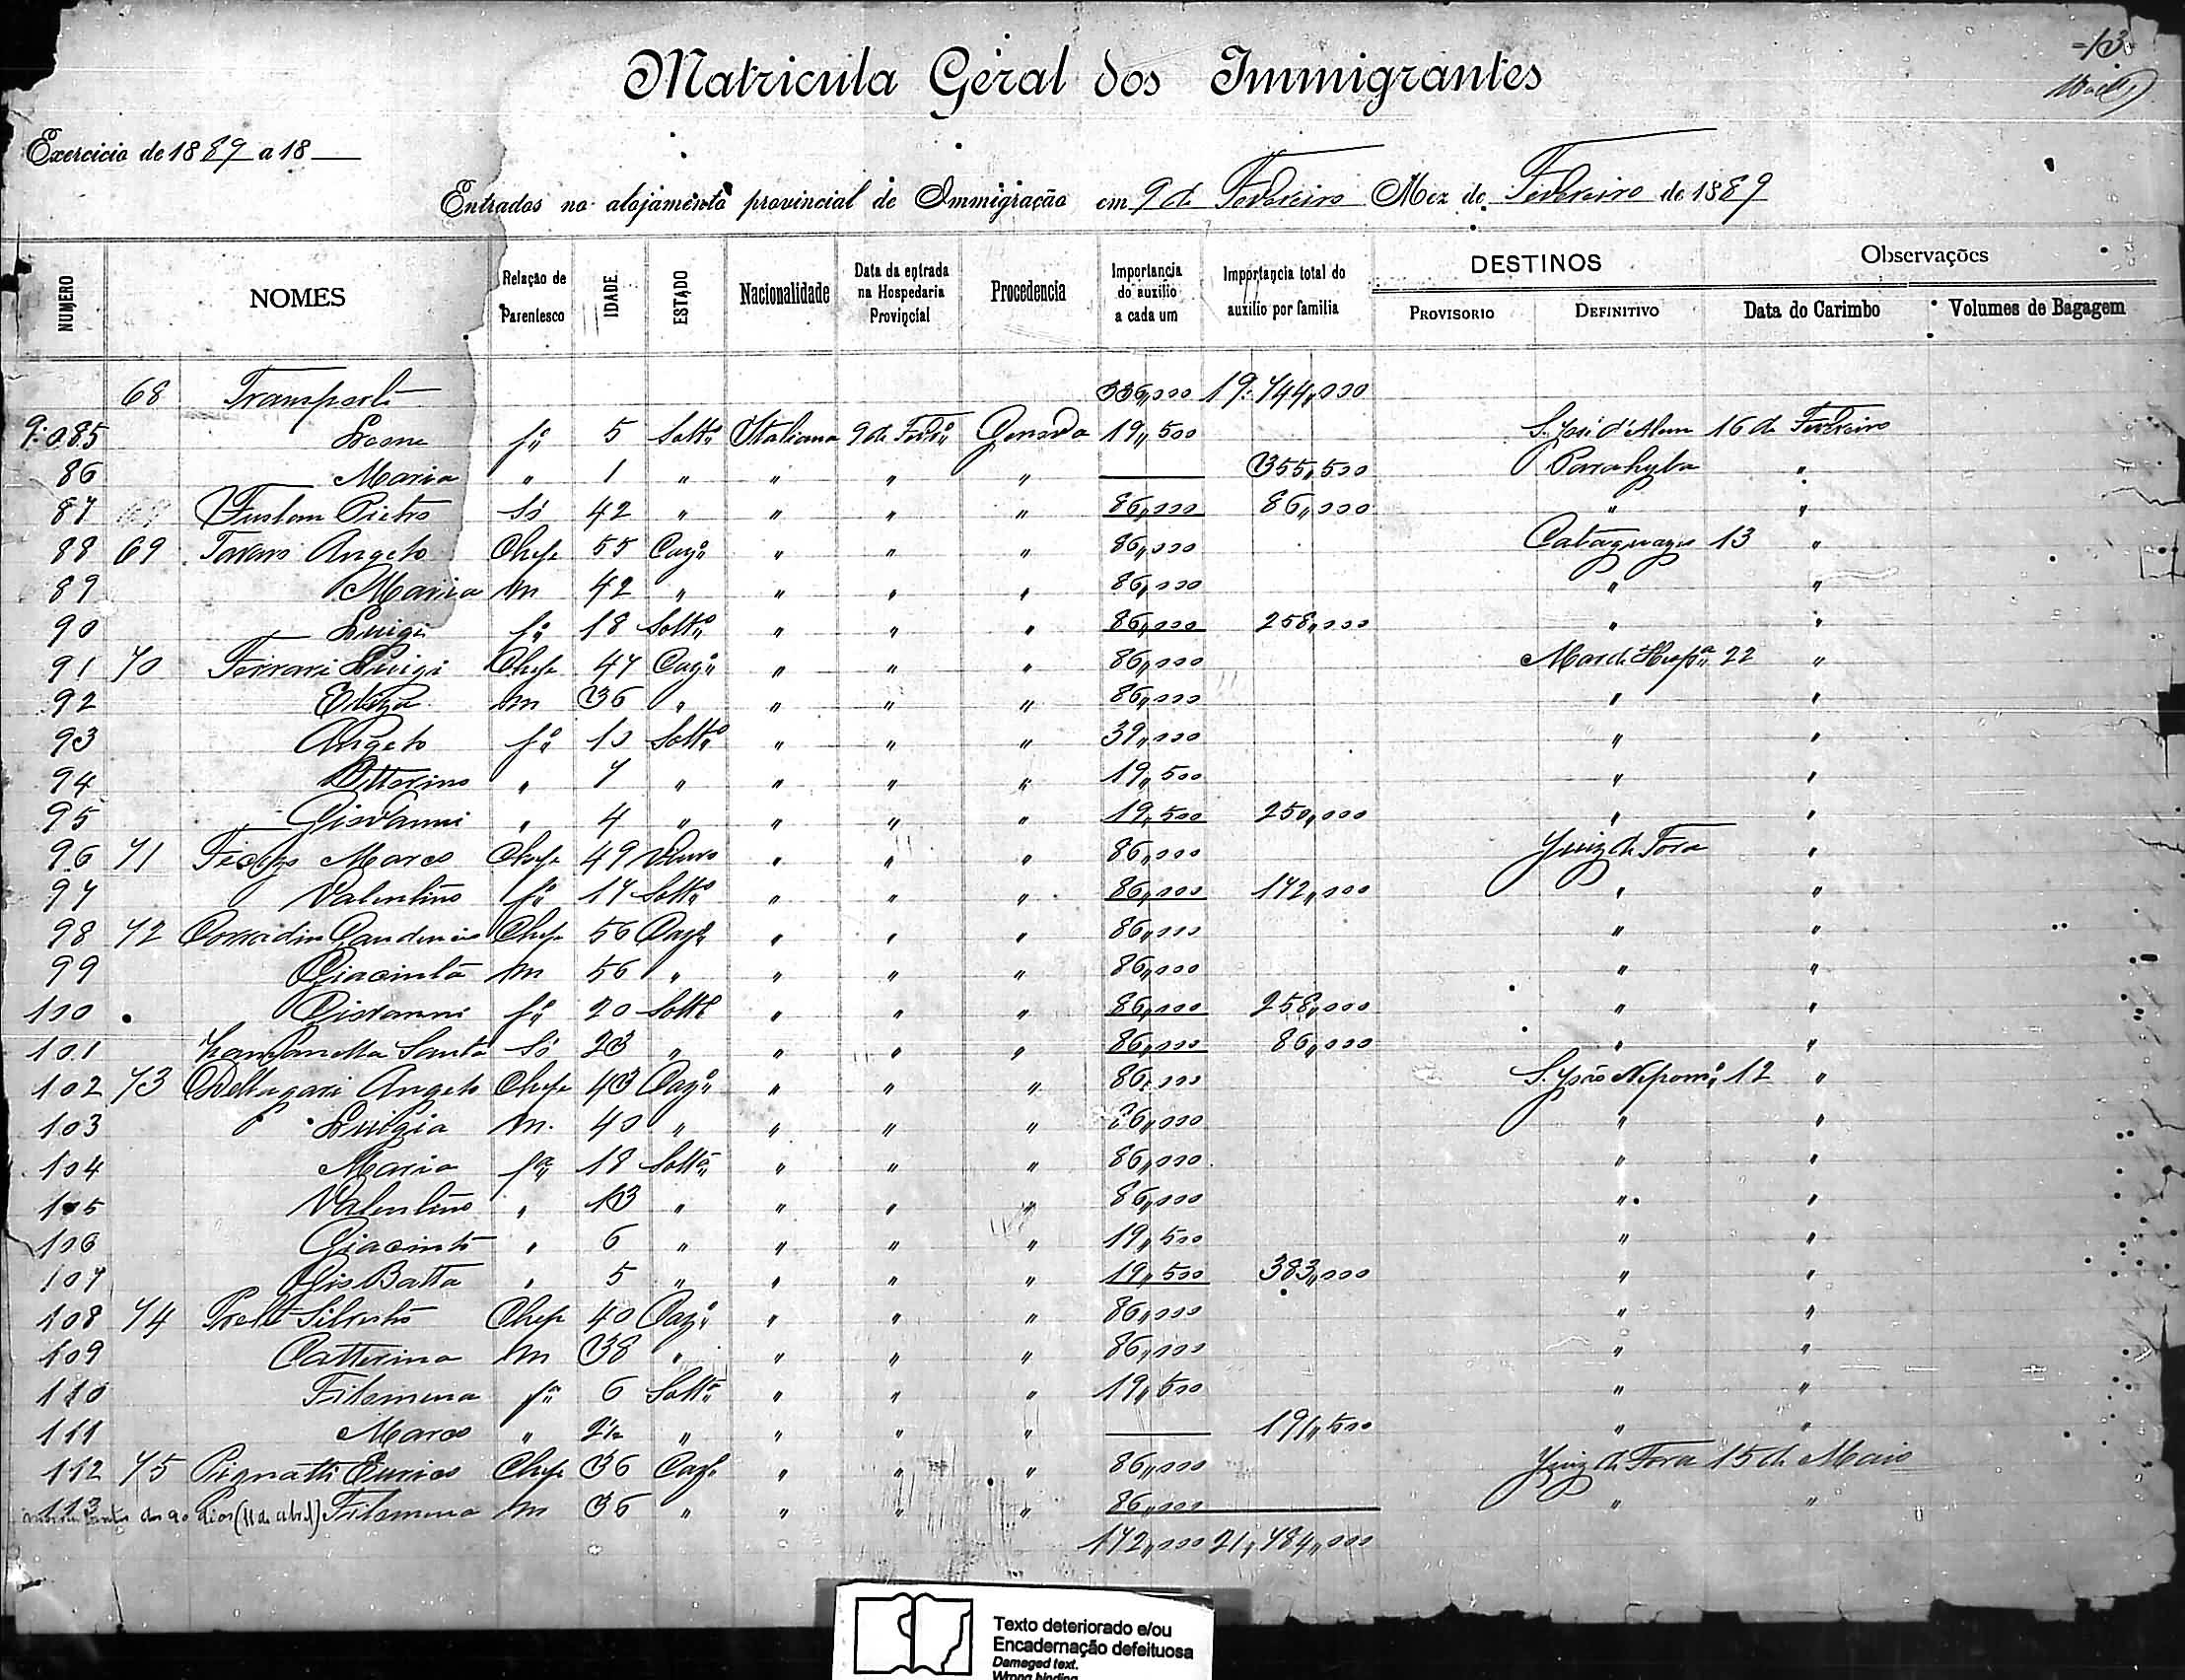 -13-
Matricula Geral dos Immigrantes
Exercicio de 1889 a 18
Entradas no alojamento provincial de Immigração em 9 de Fevereiro Mez de Fevereiro de 1889
NUMERO NOMES Relação de Parentesco IDADE ESTADO Nacionalidade Data da entrada na Hospedaria Provincial Procedencia Importancia do auxilio a cada um Importancia total do auxilio por familia DESTINOS PROVISORIO DEFINITIVO Observações Data do Carimbo Volumes de Bagagem
68 Transporte 336,,000 19:744,,000
9:085 fo 5 Solto Italiana 9 de Fevo Genova 19,,500 S. José d'Alem 16 de Fevereiro
86 Maria " 1 " " " " 355,,500 Parahyba "
87 Pietro Só 42 " " " " 86,,000 86,,000 " "
88 69 Angelo Chefe 55 Cazo " " " 86,,000 Cataguazes 13 "
89 Maria m 42 " " " " 86,,000 " "
90 Luigi fo 18 Solto " " " 86,,000 258,,000 " "
91 70 Ferrari Luigi Chefe 47 Cazo " " " 86,,000 Mar de Hespa 22 "
92 m 36 " " " " 86,,000 " "
93 Angelo fo 10 Solto " " " 39,,000 " "
94 Vittorino " 7 " " " " 19,,500 " "
95 Giovanni " 4 " " " " 19,,500 250,,000 " "
96 71 Marco Chefe 49 Viuvo " " " 86,,000 Juiz de Fora "
97 Valentino fo 17 Solto " " " 86,,000 172,,000 " "
98 72 Corradin Chefe 56 Cazo " " " 86,,000 " "
99 Giacinta m 56 " " " " 86,,000 " "
100 Giovanni fo 20 Solto " " " 86,,000 258,,000 " "
101 Santa Só 23 " " " " 86,,000 86,,000 " "
102 73 Angelo Chefe 43 Cazo " " " 86,,000 S. João Nepomo 12 "
103 Luigia m. 40 " " " " 86,,000 " "
104 Maria fa 18 Solta " " " 86,,000 " "
105 Valentino " 13 " " " " 86,,000 " "
106 Giacinto " 6 " " " " 19,,500 " "
107 Gio Batta " 5 " " " " 19,,500 383,,000 " "
108 74 Chefe 40 Cazo " " " 86,,000 " "
109 Catterina m 38 " " " " 86,,000 " "
110 Filomena fa 6 Solta " " " 19,,500 " "
111 Marco " 2 1/2 " " " " 191,,500 " "
112 75 Pignatti Enrico Chefe 36 Cazo " " " 86,,000 Juiz de Fora 15 de Maio
113 dos 90 dias (11 de abril) Filomena m 36 " " " " 86,,000 " "
172,,000 21,,484,,000
Texto deteriorado e/ou
Encadernação defeituosa
Damaged text.
Wrong binding